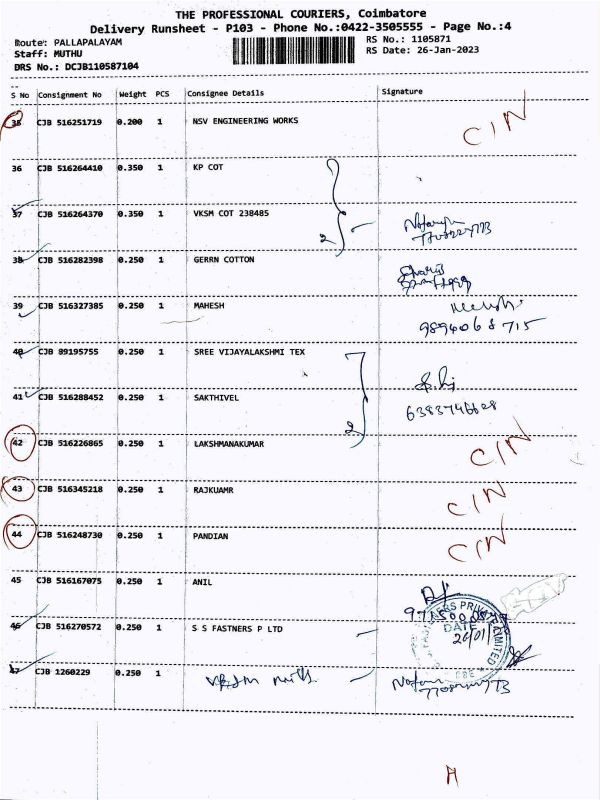 THE PROFESSIONAL COURIERS, Coimbatore
Delivery Runsheet - P103 - Phone No.:0422-3505555 - Page No.:4
Route: PALLAPALAYAM
Staff: MUTHU
DRS No.: DCJB110587104
RS No.: 1105871
RS Date: 26-Jan-2023
S No Consignment No Weight PCS Consignee Details Signature
35 CJB 516251719 0.200 1 NSV ENGINEERING WORKS C/N
36 CJB 516264410 0.350 1 KP COT
37 CJB 516264370 0.350 1 VKSM COT 238485 2
38 CJB 516282398 0.250 1 GERRN COTTON
39 CJB 516327385 0.250 1 MAHESH
9894068715
40 CJB 89195755 0.250 1 SREE VIJAYALAKSHMI TEX
41 CJB 516288452 0.250 1 SAKTHIVEL
6383746628
2
42 CJB 516226865 0.250 1 LAKSHMANAKUMAR C/N
43 CJB 516345218 0.250 1 RAJKUAMR C/N
44 CJB 516248730 0.250 1 PANDIAN C/N
45 CJB 516167075 0.250 1 ANIL
46 CJB 516270572 0.250 1 S S FASTNERS P LTD
DATE
26/01/
47 CJB 1260229 0.250 1